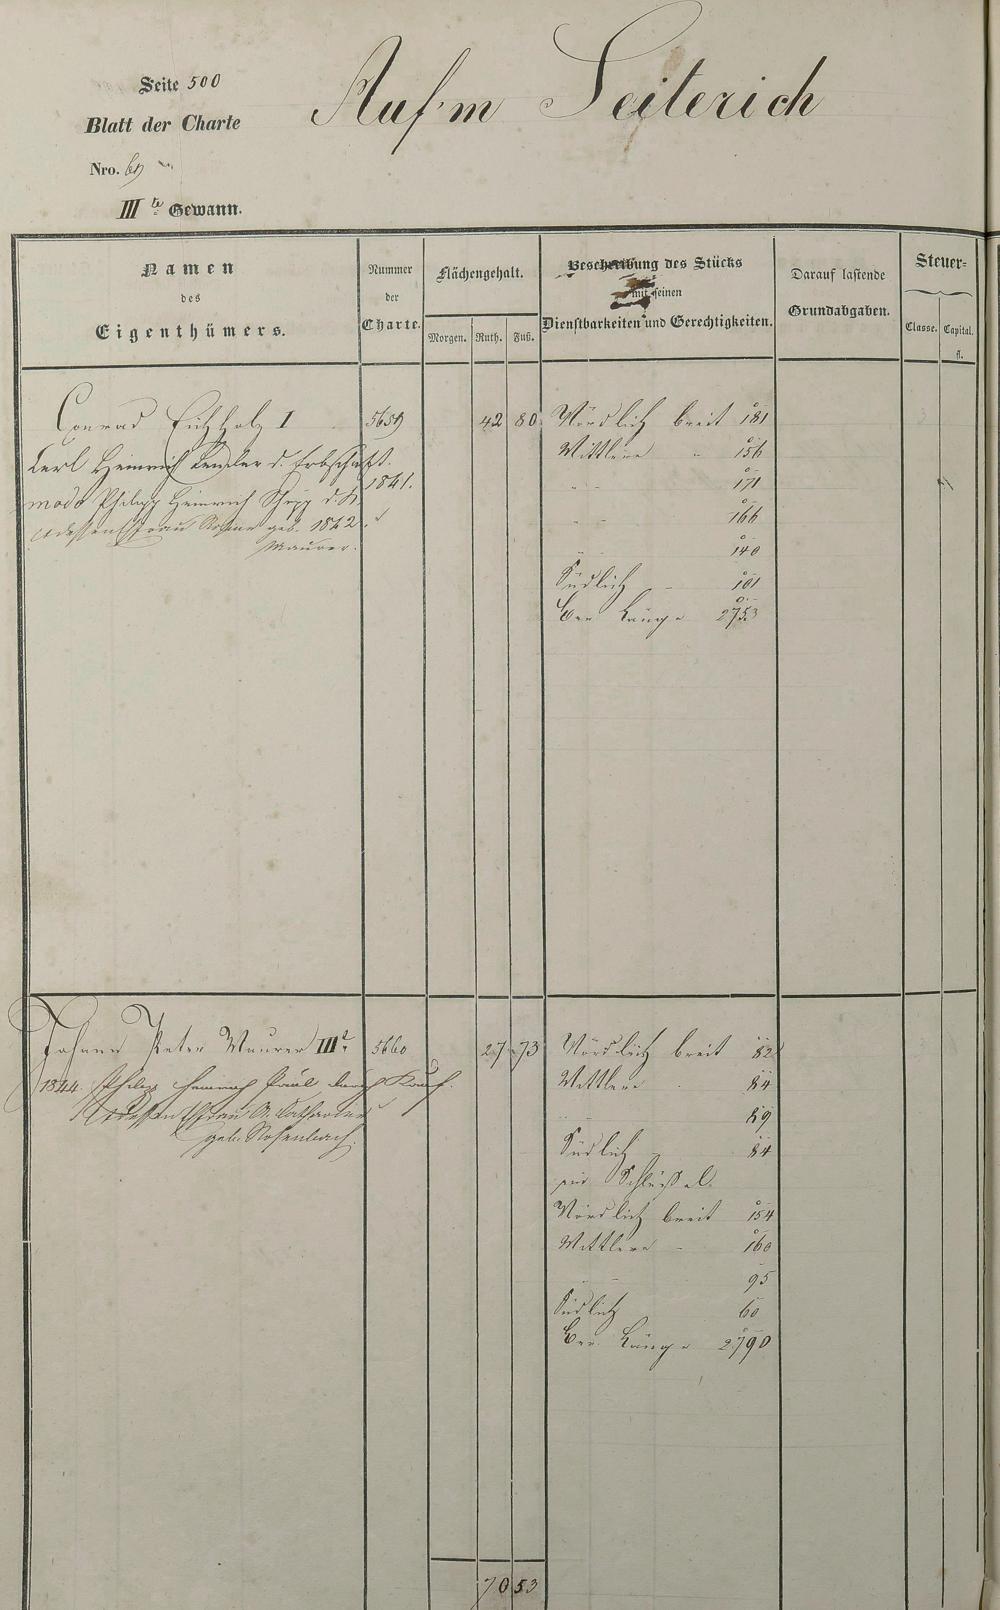 Seite 500
Auf'm Seiterich
Blatt der Charte
Nro. 69
III te Gewann.
Namen
des
Eigenthümers.
Nummer
der
Charte.
Flächengehalt.
Morgen. Ruth. Fuß.
Beschreibung des Stücks
mit seinen
Dienstbarkeiten und Gerechtigkeiten.
Darauf lastende
Grundabgaben.
Steuer-
Classe. Capital.
fl.
Conrad Eichholz I 5659 42 80 Nördlich breit 181
Carl Heinrich d. Erbschaft. Mittlere " 156
1841. " " 171
modo Philipp Heinrich
" " 166
u dessen Ehefrau geb. 1842.
Maurer. " 140
Südlich - 101
Der Länge 2753
Johann Peter Maurer III r 5660 27 73 Nördlich breit 82
1844. Philipp Heinrich Paul durch Kauf. Mittlere 84
u dessen Ehefrau A. Catharina 89
geb. Rosenbach. Südlich 84
ein Schlüssel.
Nördlich breit 154
Mittlere - 160
95
Südlich 60
Der Länge 2790
70 53